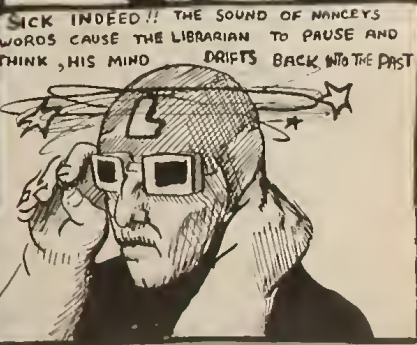 SICK INDEED!! THE SOUND OF NANCEYS
WORDS CAUSE THE LIBRARIAN TO PAUSE AND
THINK, HIS MIND DRIFTS BACK INTO THE PAST
L